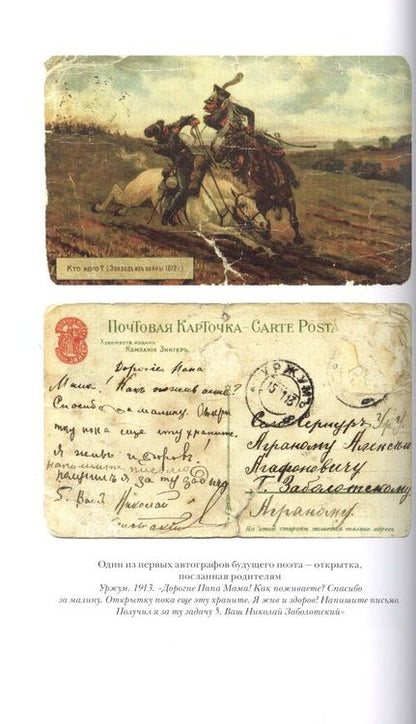 Кто кого? (Эпизодъ изъ войны 1812 г.)
ПОЧТОВАЯ КАРТОЧКА – CARTE POSTA
Художеств. издание
Компании Зингеръ.
УРЖУМЪ
15 13
Дорогіе Папа
Мама! Какъ поживаете?
Спасибо за малину. Откры
тку пока еще эту храните.
Я живъ и здоровъ!
напишите письмо
получилъ я за ту задачу
5. Вашъ Николай
Село Сернуръ
Аграному Алексѣю
Агафоновичу
Г. Заболотскому
Аграному.
На этой стороне пишется только адресъ
Один из первых автографов будущего поэта – открытка,
посланная родителям
Уржум. 1913. «Дорогие Папа Мама! Как поживаете? Спасибо
за малину. Открытку пока еще эту храните. Я жив и здоров! Напишите письмо.
Получил я за ту задачу 5. Ваш Николай Заболотский»